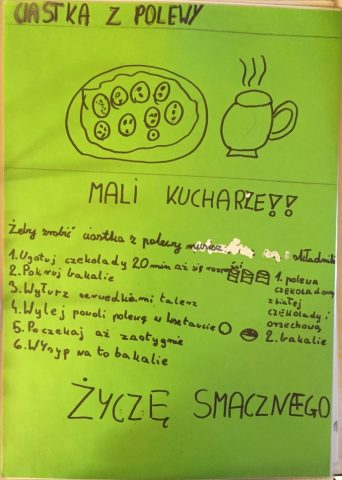 CIASTKA Z POLEWY
MALI KUCHARZE!!
Żeby zrobić ciastka z polewy musisz składniki
1. Ugotuj czekolady 20 min aż się
2. Pokruj bakalie
3. Wyłurz serwedkami talerz
4. Wylej powoli polewę w kształcie
5. Poczekaj aż zastygnie
6. Wysyp na to bakalie
1. polewa
czekoladowa
z białej
czekolady i
orzechową
2. bakalie
ŻYCZĘ SMACZNEGO